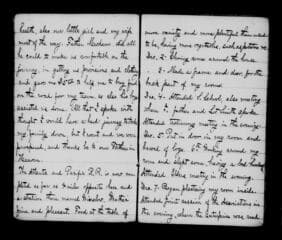 health, also our little girl and my wife
most of the way. Father Meacham did all
he could to make us comfortable on the
journey, in getting us provisions and clothing
and gave me to help me to buy food
on the road for my team as also he has
assisted us since. All that I spoke with
thought I would have a bad journey taking
my family down but I went and we were
prospered, and thanks be to our Father in
Heaven.
The Atlantic and Pacific R.R. is now com-
pleted as far as 4 miles opposite here and
a station there named Winslow. Weather
fine and pleasant. Food at the table of
more variety and more plentiful than used
to be, having more vegetables, such as potatoes etc.
Dec. 2. Choring some around the house.
" 3. Made a frame and door for the
back part of my room.
Dec. 4. Attended S. School, also meeting
when father and Lot Smith spoke.
Attended testimony meeting in the evening.
Dec. 5. Put in door in my room and
hoed of logs. 6th Dug around my
room and slept some, having a bad
Attended Elders meeting in the evening.
Dec. 7. Began plastering my room inside.
Attended joint session of the Associations in
the evening, when the exercises were read